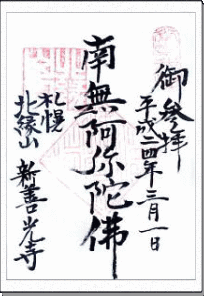 御参拝
平成二四年三月一日
南無阿弥陀佛
札幌
北縁山
新善光寺